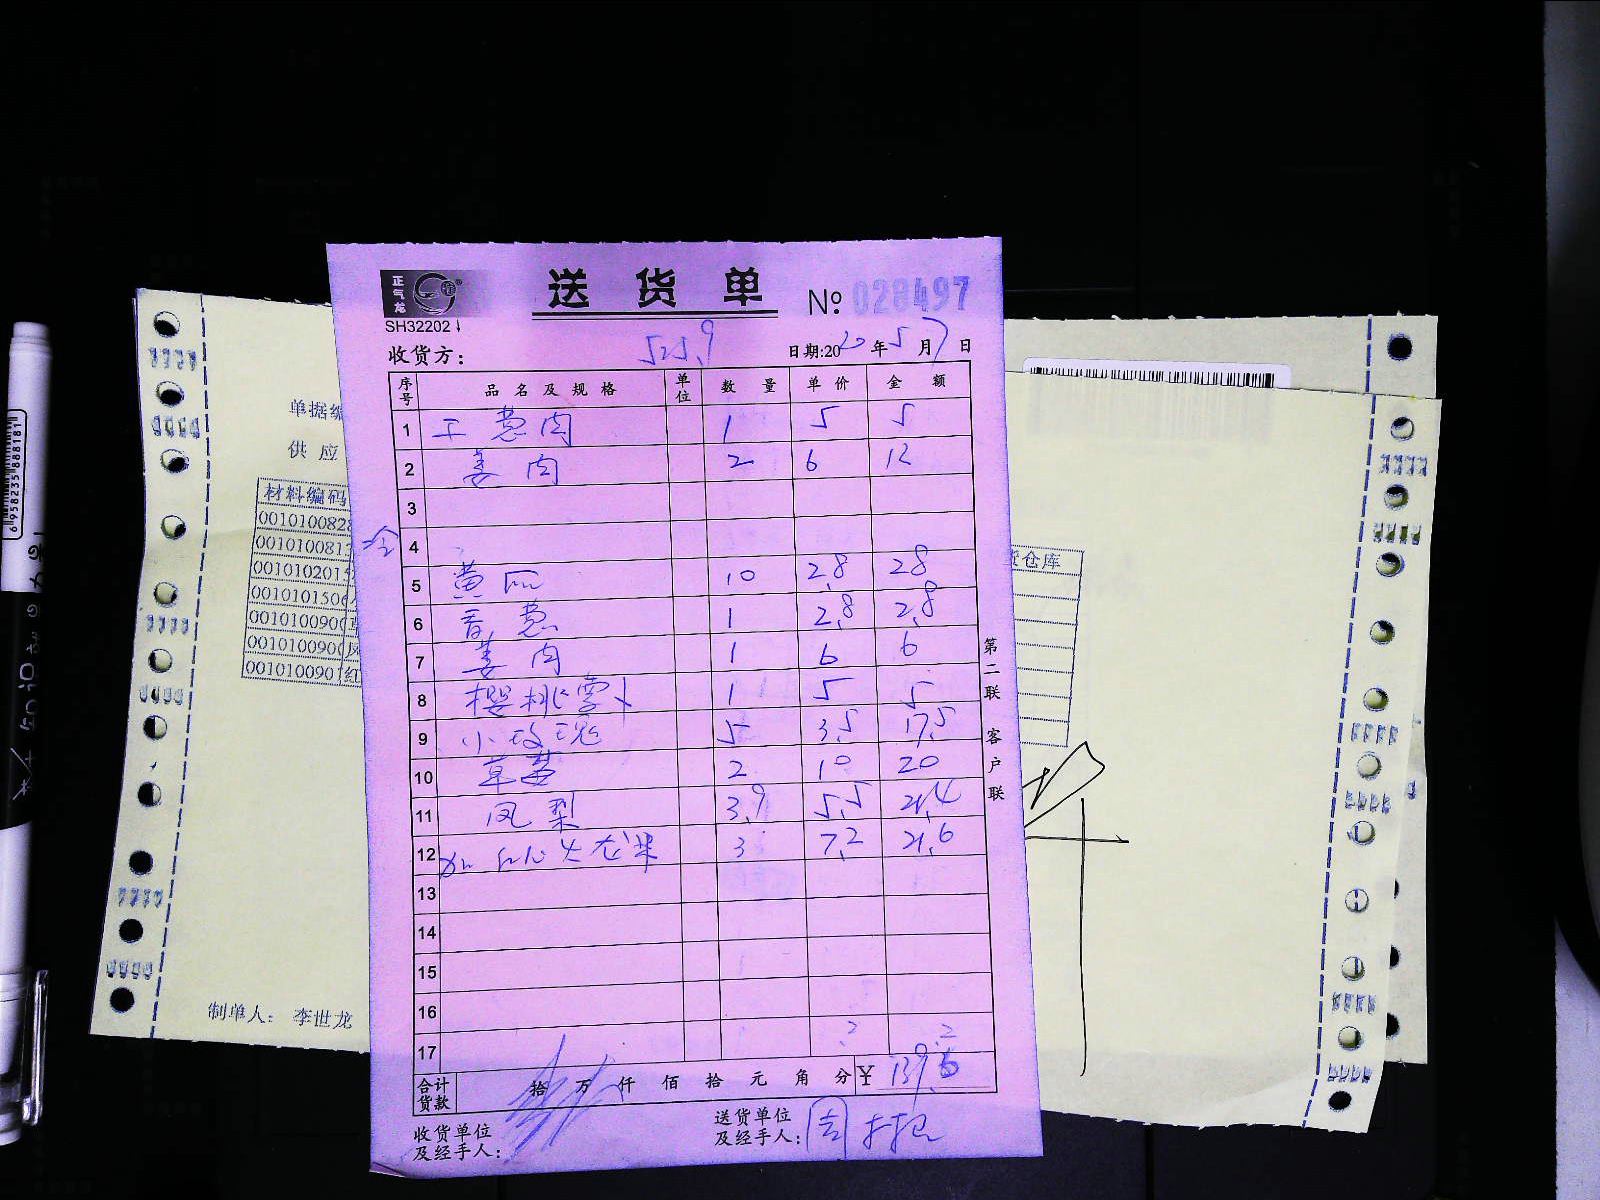 正气龙
送货单 № 028497
SH32202
收货方: 525.9 日期:2020年5月7日
序号 品名及规格 单位 数量 单价 金额
1 工葱肉 1 5 5
2 姜肉 2 6 12
3
4
5 黄瓜 10 2.8 28
6 香葱 1 2.8 2.8
7 姜肉 1 6 6
8 樱桃萝卜 1 5 5
9 小玫瑰 5 3.5 17.5
10 草莓 2 10 20
11 凤梨 3.9 5.5 21.4
12 红心火龙果 3 7.2 21.6
13
14
15
16
17
合计货款 拾 万 仟 佰 拾 元 角 分 ¥
收货单位及经手人:
送货单位及经手人:
第二联 客户联
单据编
供应
材料编码
0010100828
001010081
001010201
0010101506
001010090
001010090
001010090 红
制单人: 李世龙
仓库
6958235888181